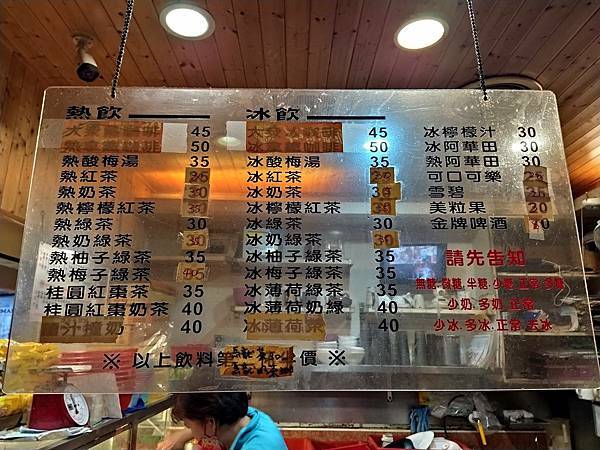 熱飲
45
50
熱酸梅湯 35
熱紅茶 25
熱奶茶 30
熱檸檬紅茶 35
熱綠茶 30
熱奶綠茶 30
熱柚子綠茶 35
熱梅子綠茶 35
桂圓紅棗茶 35
桂圓紅棗奶茶 40
40
冰飲
45
50
冰酸梅湯 35
冰紅茶
冰奶茶 30
冰檸檬紅茶
冰綠茶 30
冰奶綠茶 30
冰柚子綠茶 35
冰梅子綠茶 35
冰薄荷綠茶 35
冰薄荷奶綠 40
冰薄荷茶 40
冰檸檬汁 30
冰阿華田 30
熱阿華田 30
可口可樂 25
雪碧 25
美粒果 20
金牌啤酒
請先告知
無糖.微糖.半糖.少糖.正常.多糖
少奶.多奶.正常
少冰.多冰.正常.去冰
※ 以上飲料 價 ※